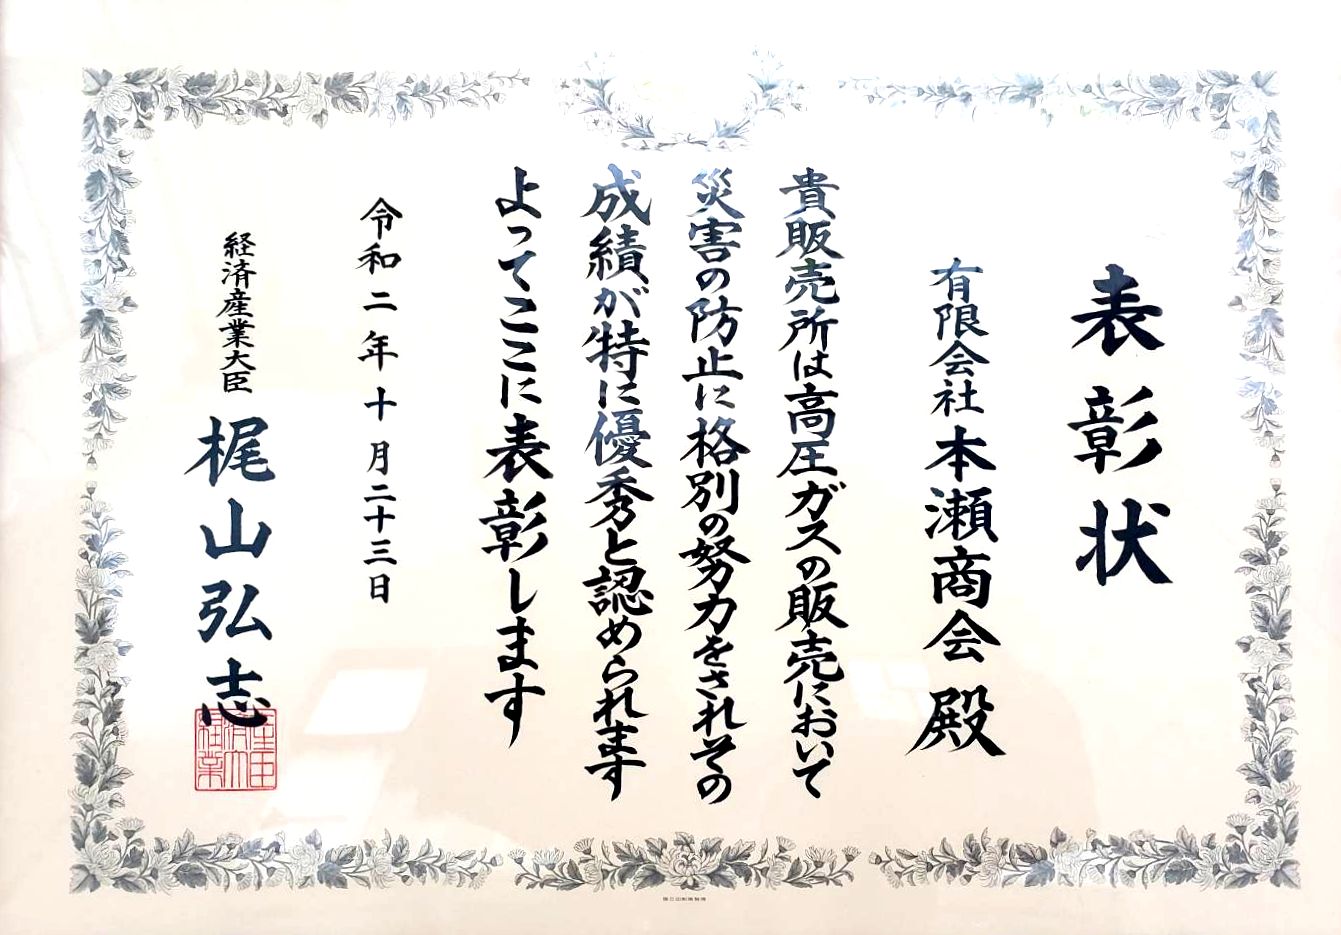 表彰状
有限会社本瀬商会殿
貴販売所は高圧ガスの販売において
災害の防止に格別の努力をされその
成績が特に優秀と認められます
よってここに表彰します
令和二年十月二十三日
経済産業大臣 梶山弘志